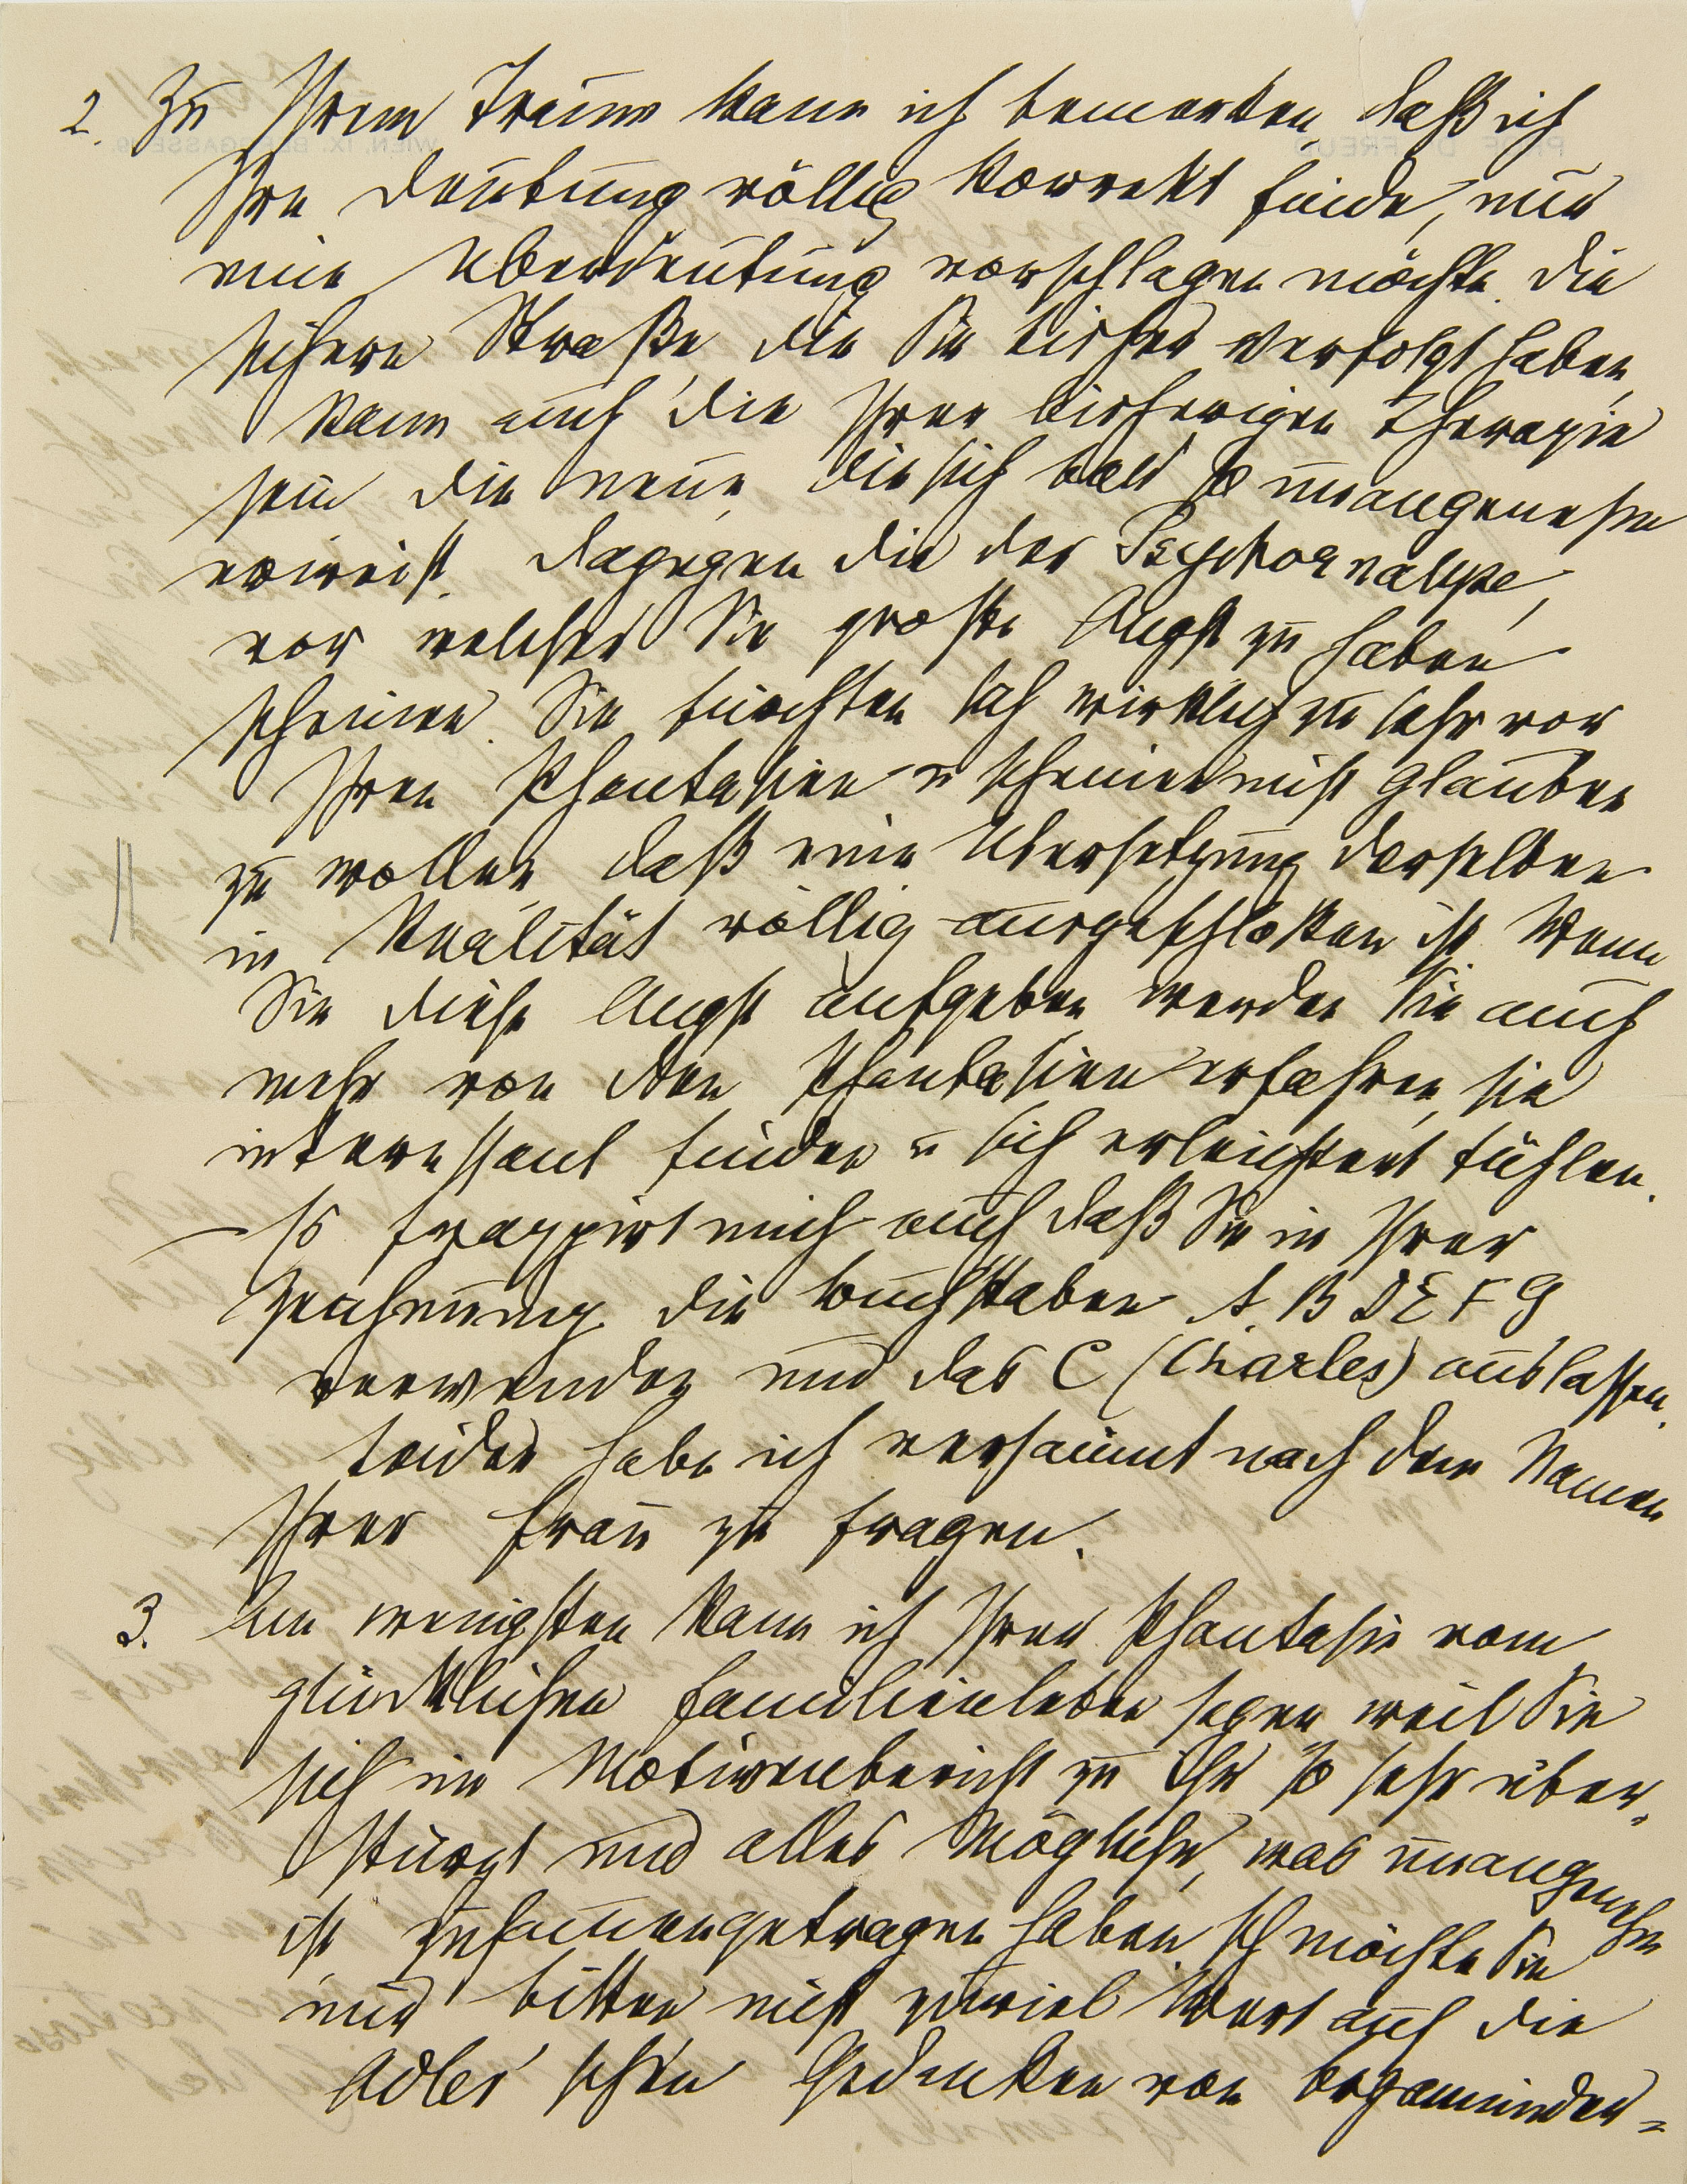 2. Zu Ihrem Traum kann ich bemerken, daß ich
Ihre Deutung völlig korrekt finde, nur
eine Überdeutung vorschlagen möchte. Die
sichere Straße, die Sie bisher verfolgt haben,
kann auch die Ihrer bisherigen Therapie
sein, die neue, die sich bald so unangenehm
erweist, dagegen die der Psychoanalyse,
vor welcher Sie große Angst zu haben
scheinen. Sie fürchten sich wirklich zu sehr vor
Ihren Phantasien u scheinen nicht glauben
zu wollen, daß eine Übersetzung derselben
in Realität völlig ausgeschloßen ist. Wenn
Sie diese Angst aufgeben, werden Sie auch
mehr von den Phantasien erfahren, sie
interessant finden u sich erleichtert fühlen.
– Es frappirt mich auch daß Sie in Ihrer
Zeichnung die Buchstaben A. B D E F G
verwenden und das C (Charles) auslassen.
Leider habe ich versäumt nach dem Namen
Ihrer Frau zu fragen.
3. Am wenigsten kann ich Ihrer Phantasie vom
glücklichen Familienleben sagen, weil Sie
sich im Motivenbericht zu ihr so sehr über-
stürzt und alles Mögliche, was unangenehm
ist zusammengetragen haben. Ich möchte Sie
nur bitten nicht zuviel Wert auf die
Adler'schen Gedanken von Organminder-